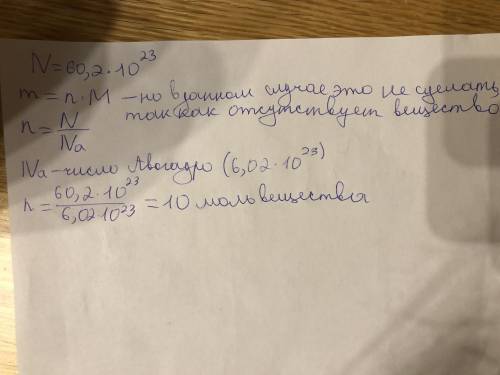 N=60,2·10²³
m = n·M – но в данном случае это не сделать,
так как отсутствует вещество
n = N/Na
Na – число Авогадро (6,02·10²³)
n = 60,2·10²³/6,02·10²³ = 10 моль вещества